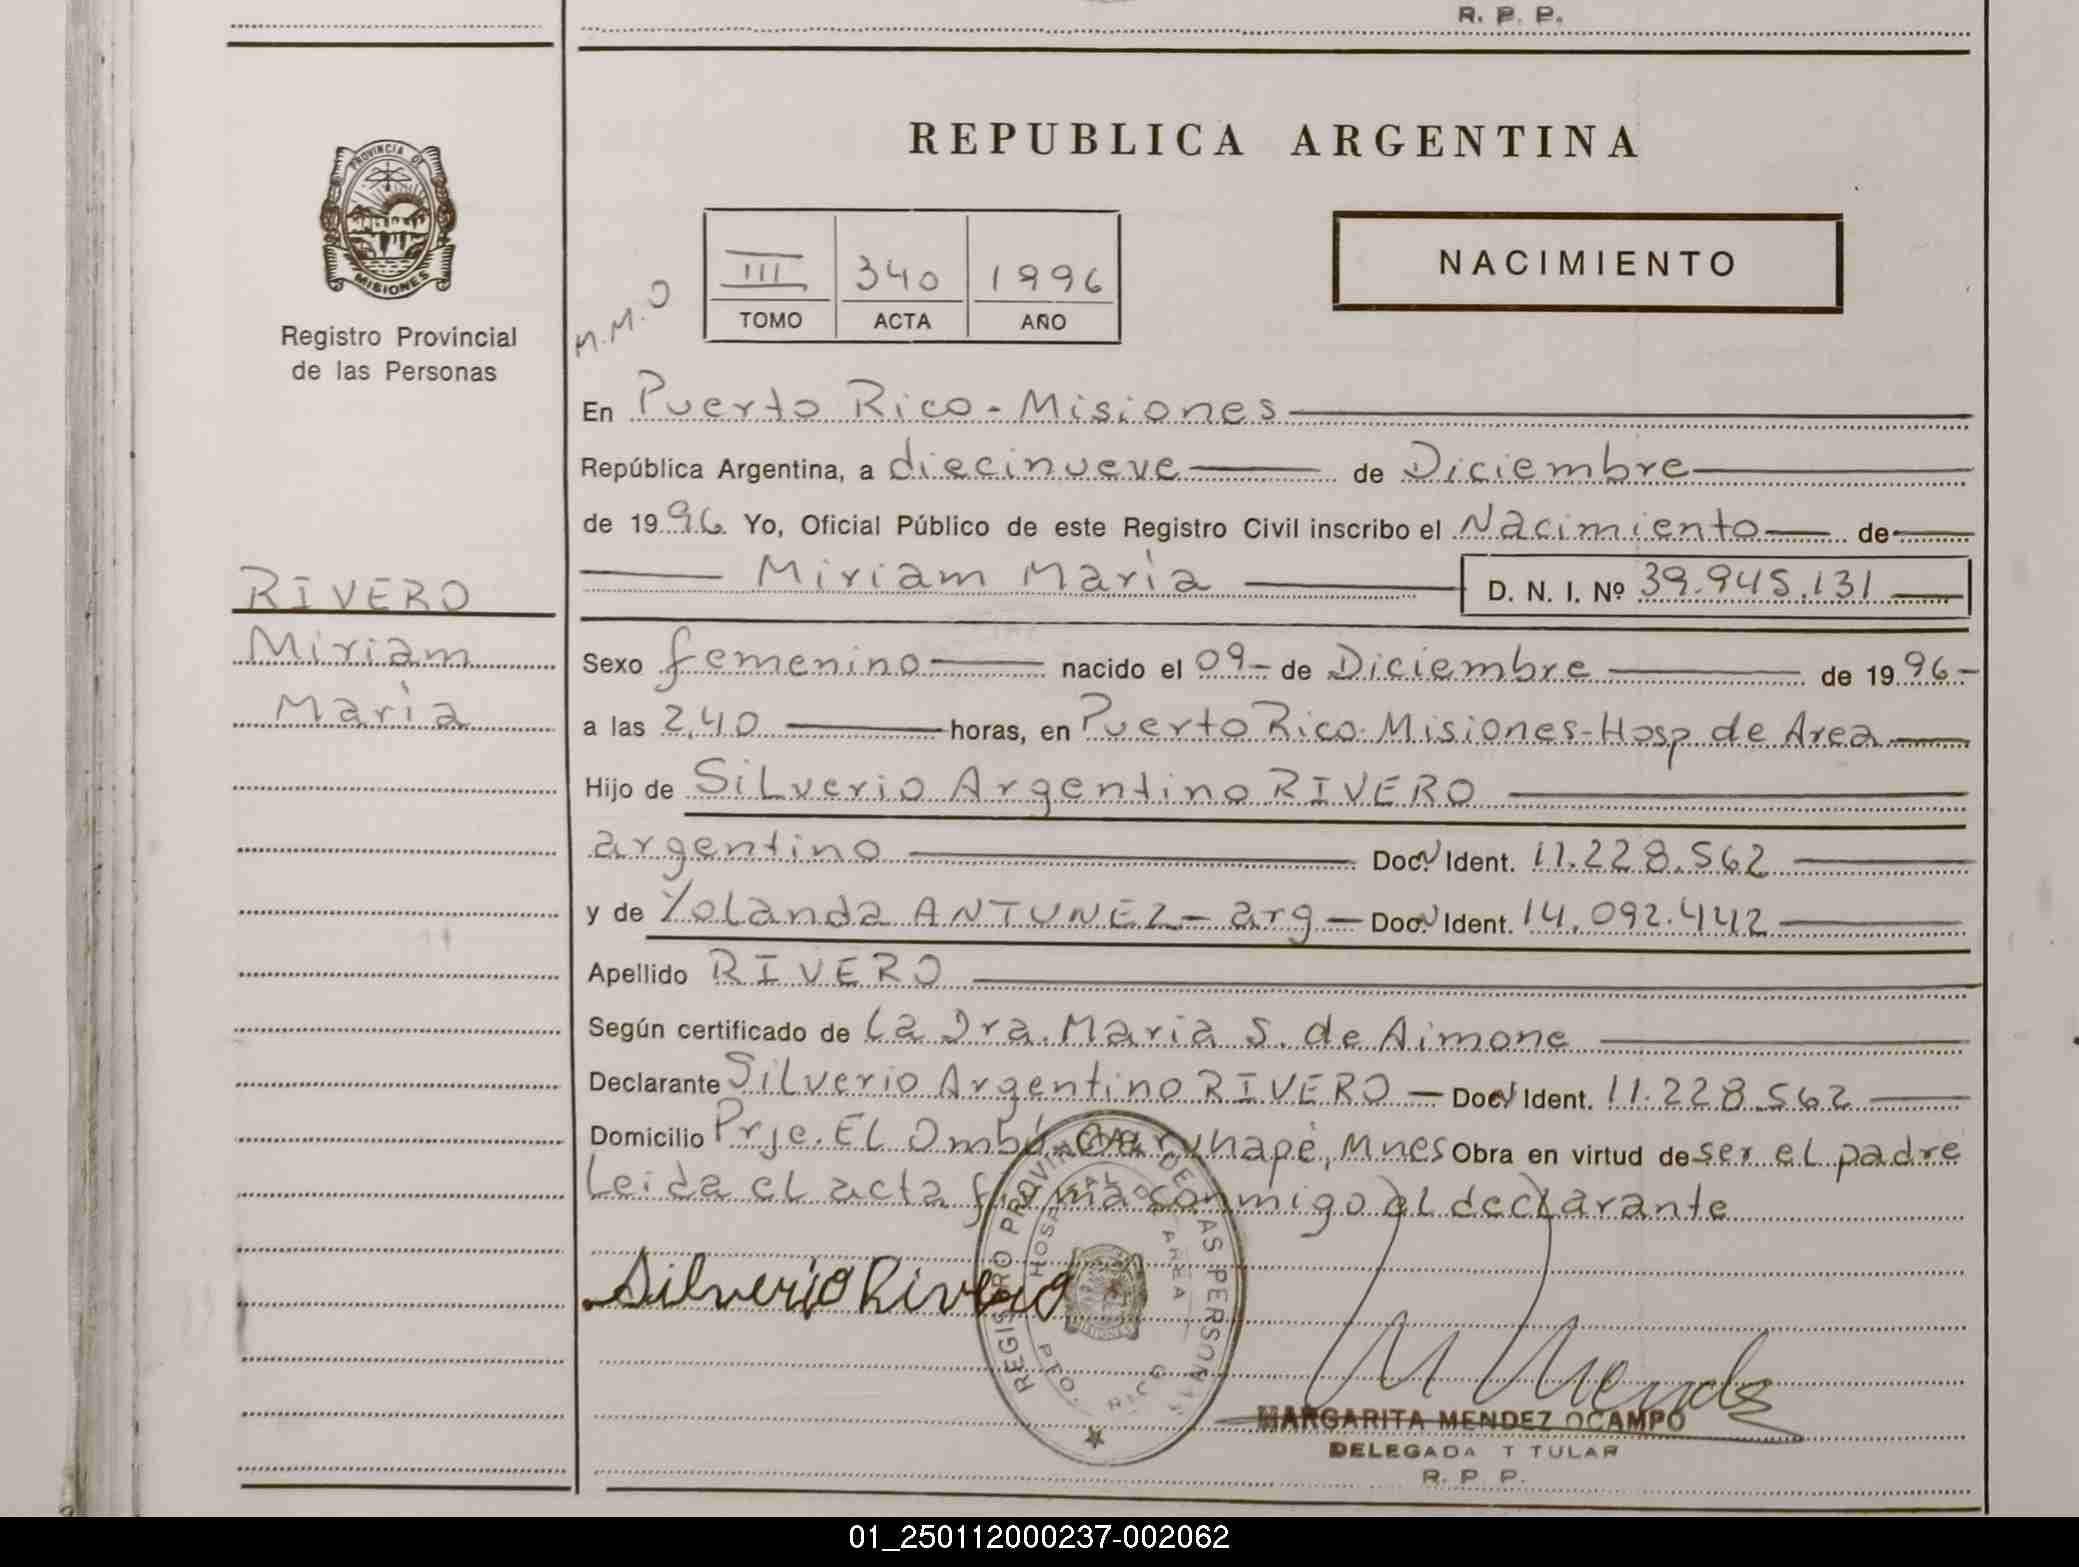 R. P. P.
REPUBLICA ARGENTINA
PROVINCIA DE
MISIONES
Registro Provincial
de las Personas
M.M.O
III 340 1996
TOMO ACTA AÑO
NACIMIENTO
En Puerto Rico - Misiones
República Argentina, a diecinueve de Diciembre
de 1996 Yo, Oficial Público de este Registro Civil inscribo el Nacimiento de
Miriam María D. N. I. Nº 39.945.131
RIVERO
Miriam
María
Sexo femenino nacido el 09 - de Diciembre de 1996 -
a las 2,40 horas, en Puerto Rico - Misiones - Hosp de Area
Hijo de Silverio Argentino RIVERO
argentino Doc. Ident. 11.228.562
y de Yolanda ANTUNEZ - arg - Doc. Ident. 14.092.442
Apellido RIVERO
Según certificado de la Dra. Maria S. de Aimone
Declarante Silverio Argentino RIVERO - Doc. Ident. 11.228.562
Domicilio Prje. El Ombú, Garuhapé, Mnes Obra en virtud de ser el padre
Leida el acta firma conmigo el declarante
Silverio Rivero
REGISTRO PROVINCIAL DE LAS PERSONAS
HOSPITAL DE AREA
PTO. RICO
M Mendez
MARGARITA MENDEZ OCAMPO
DELEGADA T TULAR
R. P. P.
01_250112000237-002062